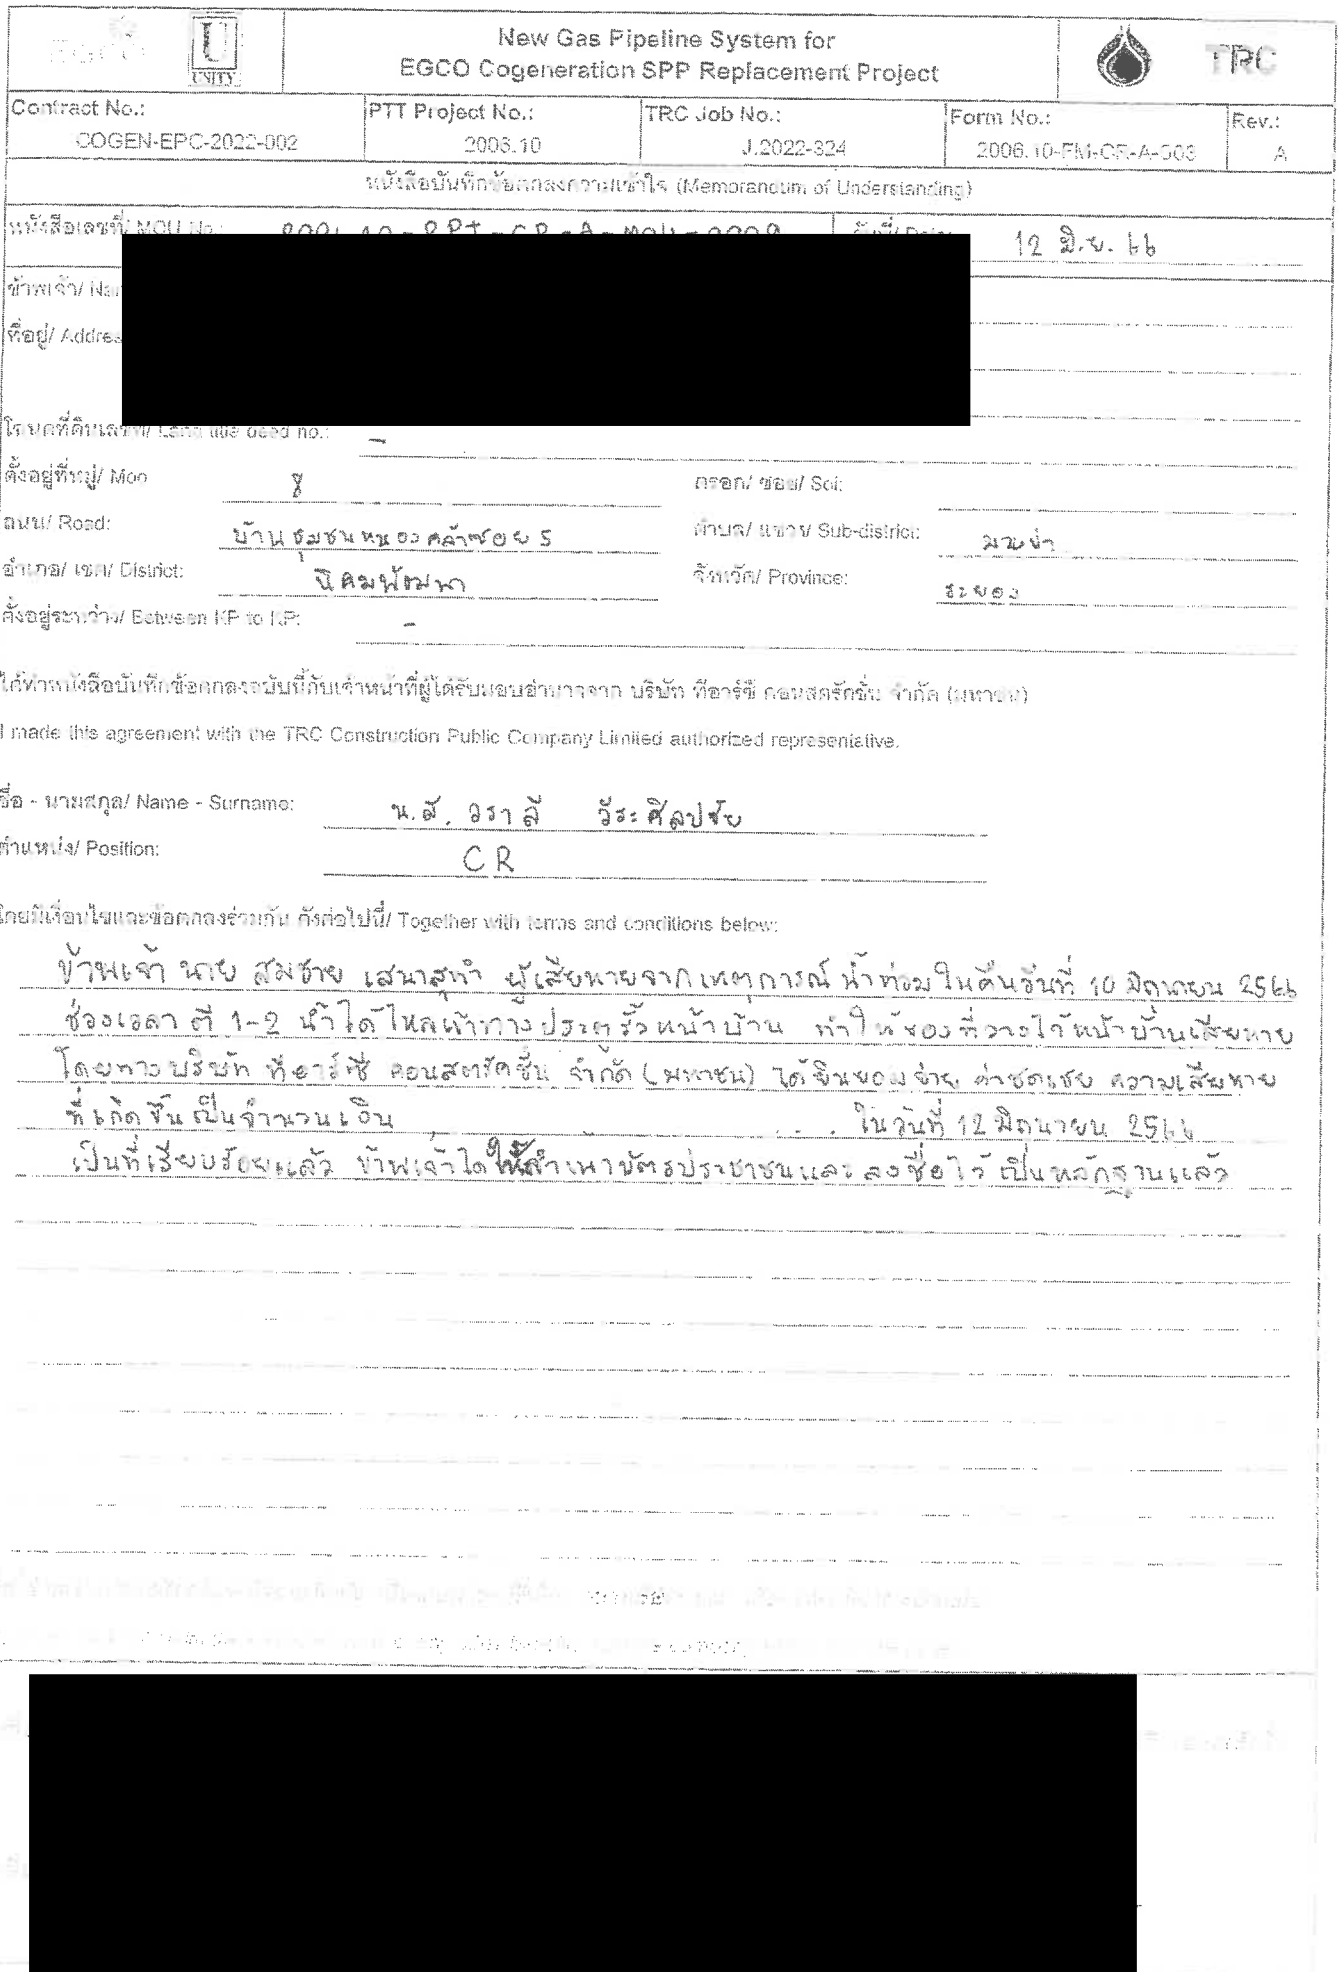 EGCO
UNITY
New Gas Pipeline System for
EGCO Cogeneration SPP Replacement Project
TRC
Contract No.:
COGEN-EPC-2022-002
PTT Project No.:
2006.10
TRC Job No.:
J.2022-324
Form No.:
2006.10-FM-CR-A-003
Rev.:
A
หนังสือบันทึกข้อตกลงความเข้าใจ (Memorandum of Understanding)
หนังสือเลขที่/ MOU No.:
12 มิ.ย. 66
ข้าพเจ้า/
ที่อยู่/
โฉนดที่ดินเลขที่/ Land title deed no.: -
ตั้งอยู่ที่หมู่/ Moo 8 ตรอก/ ซอย/ Soi:
ถนน/ Road: บ้านชุมชนหนองคล้าซอย 5 ตำบล/ แขวง/ Sub-district: มาบข่า
อำเภอ/ เขต/ District: นิคมพัฒนา จังหวัด/ Province: ระยอง
ตั้งอยู่ระหว่าง/ Between KP to KP: -
ได้ทำหนังสือบันทึกข้อตกลงฉบับนี้กับเจ้าหน้าที่ผู้ได้รับมอบอำนาจจาก บริษัท ทีอาร์ซี คอนสตรัคชั่น จำกัด (มหาชน)
I made this agreement with the TRC Construction Public Company Limited authorized representative.
ชื่อ - นามสกุล/ Name - Surname: น.ส. วราลี วีระศิลปชัย
ตำแหน่ง/ Position: CR
โดยมีเงื่อนไขและข้อตกลงร่วมกัน ดังต่อไปนี้/ Together with terms and conditions below:
ข้าพเจ้า นาย สมชาย เสนาสุทำ ผู้เสียหายจากเหตุการณ์น้ำท่วมในคืนวันที่ 10 มิถุนายน 2566
ช่วงเวลา ตี 1-2 น้ำได้ไหลเข้าทางประตูรั้วหน้าบ้าน ทำให้ของที่วางไว้หน้าบ้านเสียหาย
โดยทางบริษัท ทีอาร์ซี คอนสตรัคชั่น จำกัด (มหาชน) ได้ยินยอมจ่าย ค่าชดเชย ความเสียหาย
ที่เกิดขึ้นเป็นจำนวนเงิน ในวันที่ 12 มิถุนายน 2566
เป็นที่เรียบร้อยแล้ว ข้าพเจ้าได้ให้สำเนาบัตรประชาชนและลงชื่อไว้เป็นหลักฐานแล้ว